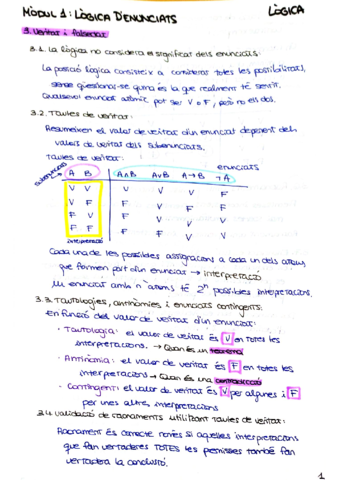 MÒDUL 1: LÒGICA D'ENUNCIATS
LÒGICA
3. Veritat i falsedat
3.1. La lògica no considera el significat dels enunciats:
La posició lògica consisteix a considerar totes les possibilitats,
sense qüestionar-se quina és la que realment té sentit.
Qualsevol enunciat atòmic pot ser V o F, però no els dos.
3.2. Taules de veritat:
Resumeixen el valor de veritat d'un enunciat depenent dels
valors de veritat dels subenunciats.
Taules de veritat:
enunciats
subenunciats
A B A∧B A∨B A→B ¬A
V V V V V F
V F F V F F
F V F V V V
F F F F V V
interpretació
Cada una de les possibles assignacions a cada un dels àtoms,
que formen part d'un enunciat → interpretació
Un enunciat amb n àtoms, té 2ⁿ possibles interpretacions.
3.3. Tautologies, antinòmies i enunciats contingents:
en funció del valor de veritat d'un enunciat:
· Tautologia: el valor de veritat és V en totes les
interpretacions. → Quan és un teorema
· Antinòmia: el valor de veritat és F en totes les
interpretacions → Quan és una contradicció
· Contingent: el valor de veritat és V per algunes i F
per unes altres, interpretacions
3.4. Validació de raonaments utilitzant taules de veritat:
Raonament és correcte només si aquelles interpretacions
que fan vertaderes TOTES les premisses també fan
vertadera la conclusió.
1